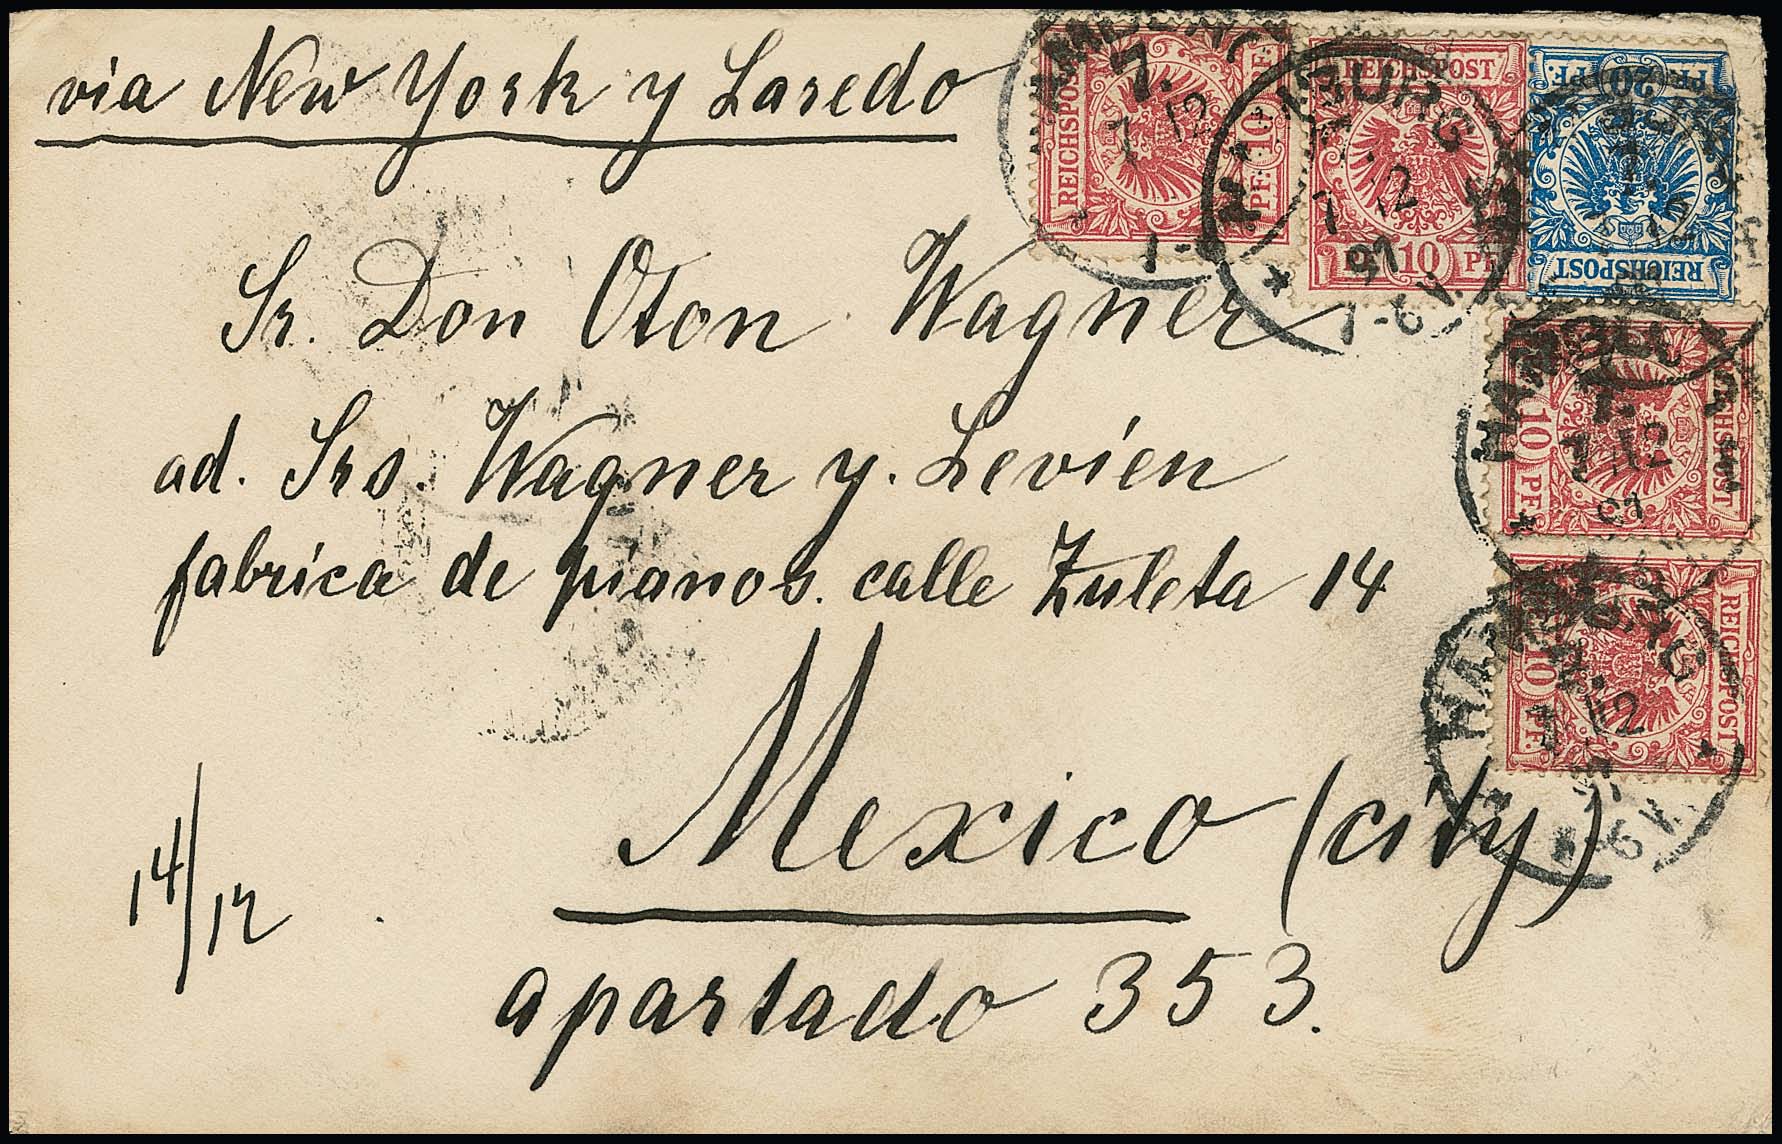 via New York y Laredo
Sr. Don Oton Wagner
ad. Srs. Wagner y. Levien
fabrica de pianos. calle Zuleta 14
Mexico (city)
apartado 353.
14/12
REICHSPOST
10 PF.
HAMBURG
7.
7 12
REICHSPOST
10 PF.
HAMBURG
7 12
91
1-6 V.
REICHSPOST
PF. 20 PF.
REICHSPOST
10 PF.
HAMBURG
7.
7 12
91
REICHSPOST
10 PF.
HAMBURG
7 12